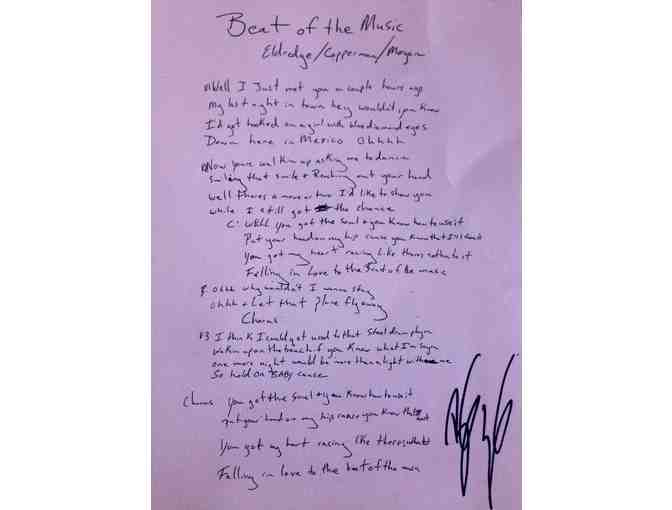 Beat of the Music
Eldredge/Copperman/Morgan
Well I Just met you a couple hours ago
My last night in town hey wouldn't you know
I'd get hooked on a girl with blue diamond eyes
Down here in Mexico Ohhhh
Now youre walkin up asking me to dance
Smiling that smile + Reaching out your hand
Well theres a move or two I'd like to show you
while I still got the chance
C: Well you got the soul + you Know how to use it
Put your hand on my hip cause you Know that I
You got my heart racing like theres nothin to it
Falling in Love to the Beat of the music
Ohhh why wouldn't I wanna stay
Ohhh + Let that Plane fly away
Chorus
I think I could get used to that Steel drum playin
Wakin up on the beach if you Know what I'm sayin
one more night would be more than alright with me
So hold On BABY cause
Chorus you got the soul + you Know how to use it
put your hand on my hip cause you Know that I
You got my heart racing like theres nothin to it
Falling in love to the beat of the music